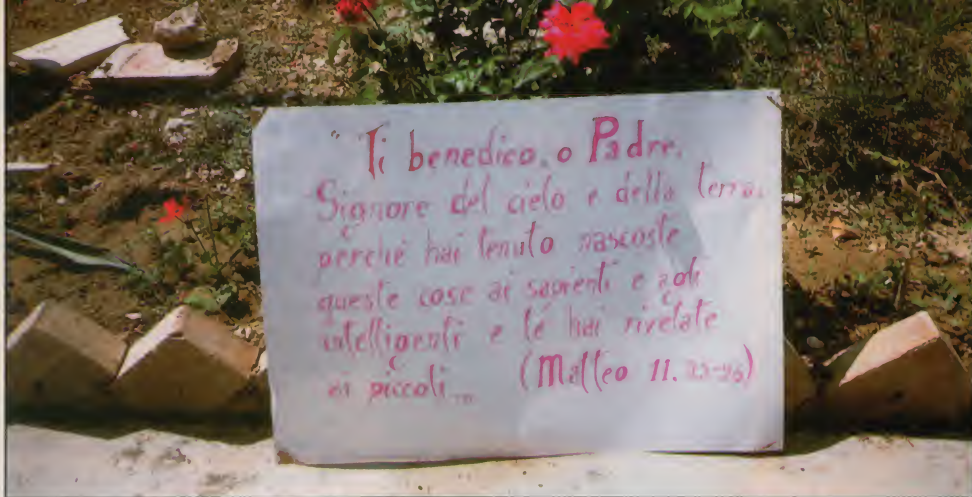 " Ti benedico, o Padre,
Signore del cielo e della terra,
perché hai tenuto nascoste
queste cose ai sapienti e agli
intelligenti e le hai rivelate
ai piccoli... (Matteo 11. 25-26)